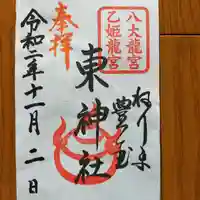 八大龍宮
乙姫龍宮
奉拝
東神社
令和二年十一月二日